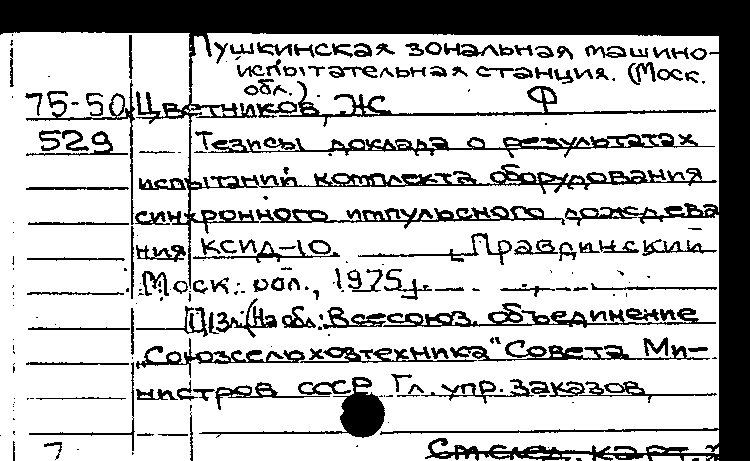 Пушкинская зональная машино-
испытательная станция. (Моск.
обл.)
75-50 Цветников, Ж С Ф
529 Тезисы доклада о результатах
испытаний комплекта оборудования
синхронного импульсного дождева
ния КСИД-10. [Правдинский
Моск. обл., 1975].
13л. (На обл.: Всесоюз. объединение
„Союзсельхозтехника" Совета Ми-
нистров СССР Гл. упр. заказов,
7 См. след. карт.